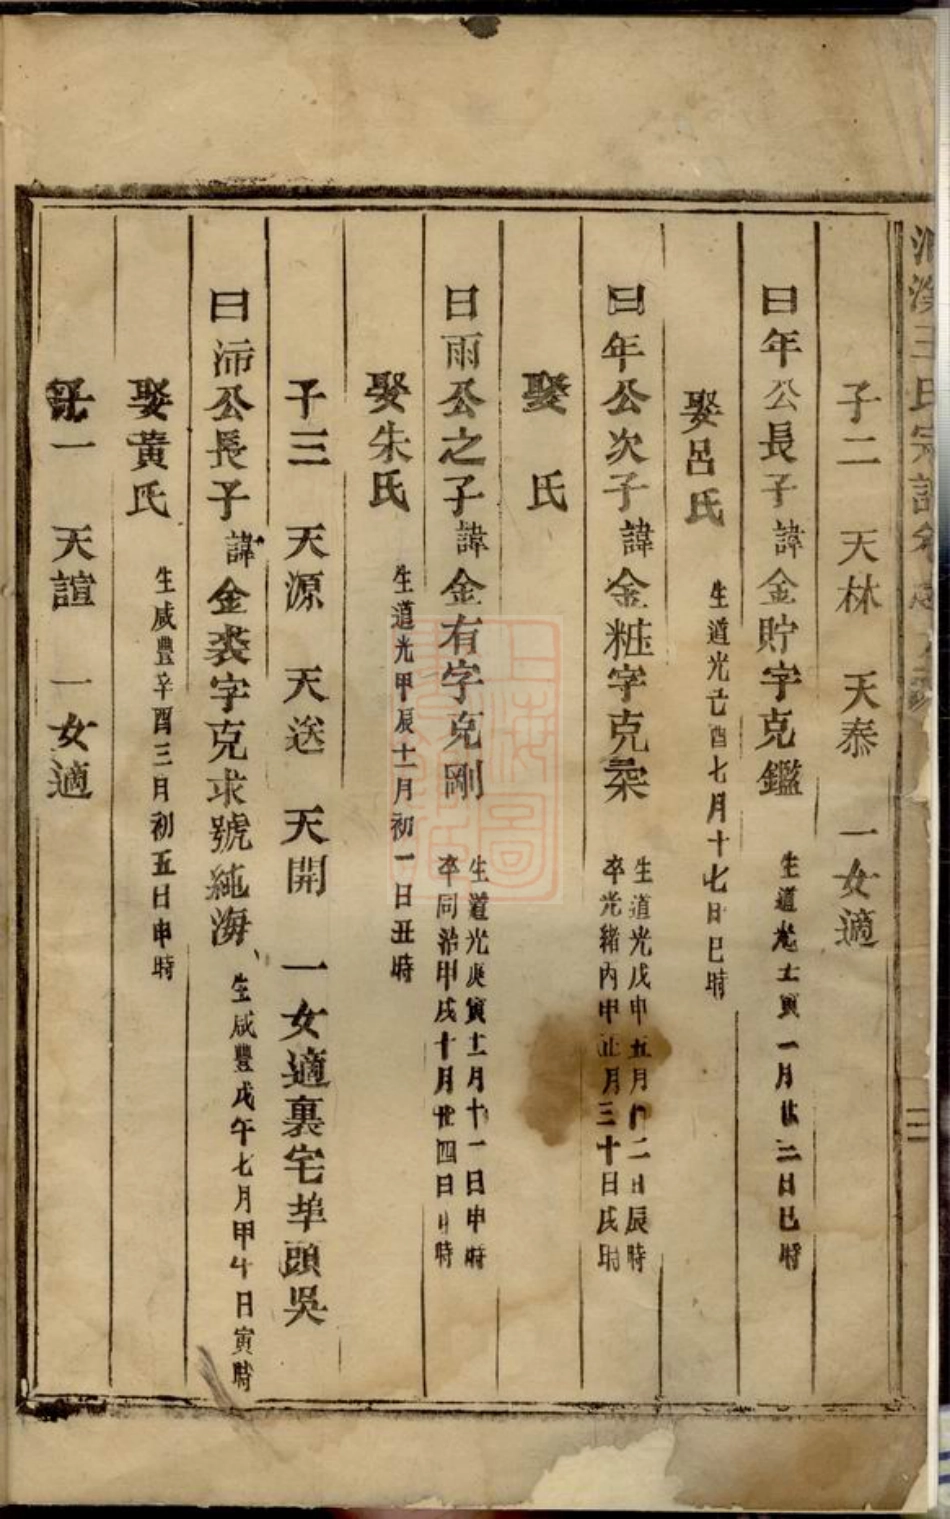 王氏宗譜卷
子二　天林　天泰　一女適
曰年公長子諱金貯字克鑑　生道光壬寅一月廿二日巳時
娶呂氏　生道光己酉七月十七日巳時
曰年公次子諱金粧字克柔　生道光戊申五月十二日辰時
卒光緒丙申正月三十日戌時
娶　氏
曰雨公之子諱金有字克剛　生道光庚寅十二月十一日申時
卒同治甲戌十月廿四日　時
娶朱氏　生道光甲辰十一月初一日丑時
子三　天源　天送　天開　一女適裏宅埠頭吳
曰沛公長子諱金裘字克求號純海　生咸豐戊午七月甲午日寅時
娶黃氏　生咸豐辛酉三月初五日申時
子一　天誼　一女適